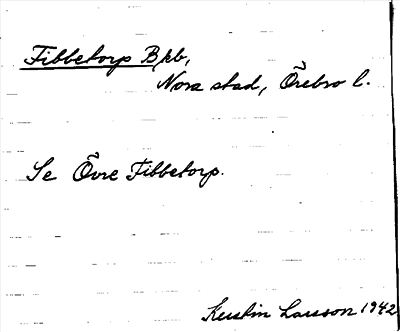 Fibbetorp Bkb,
Nora stad, Örebro l.
Se Övre Fibbetorp.
Kerstin Larsson 1942